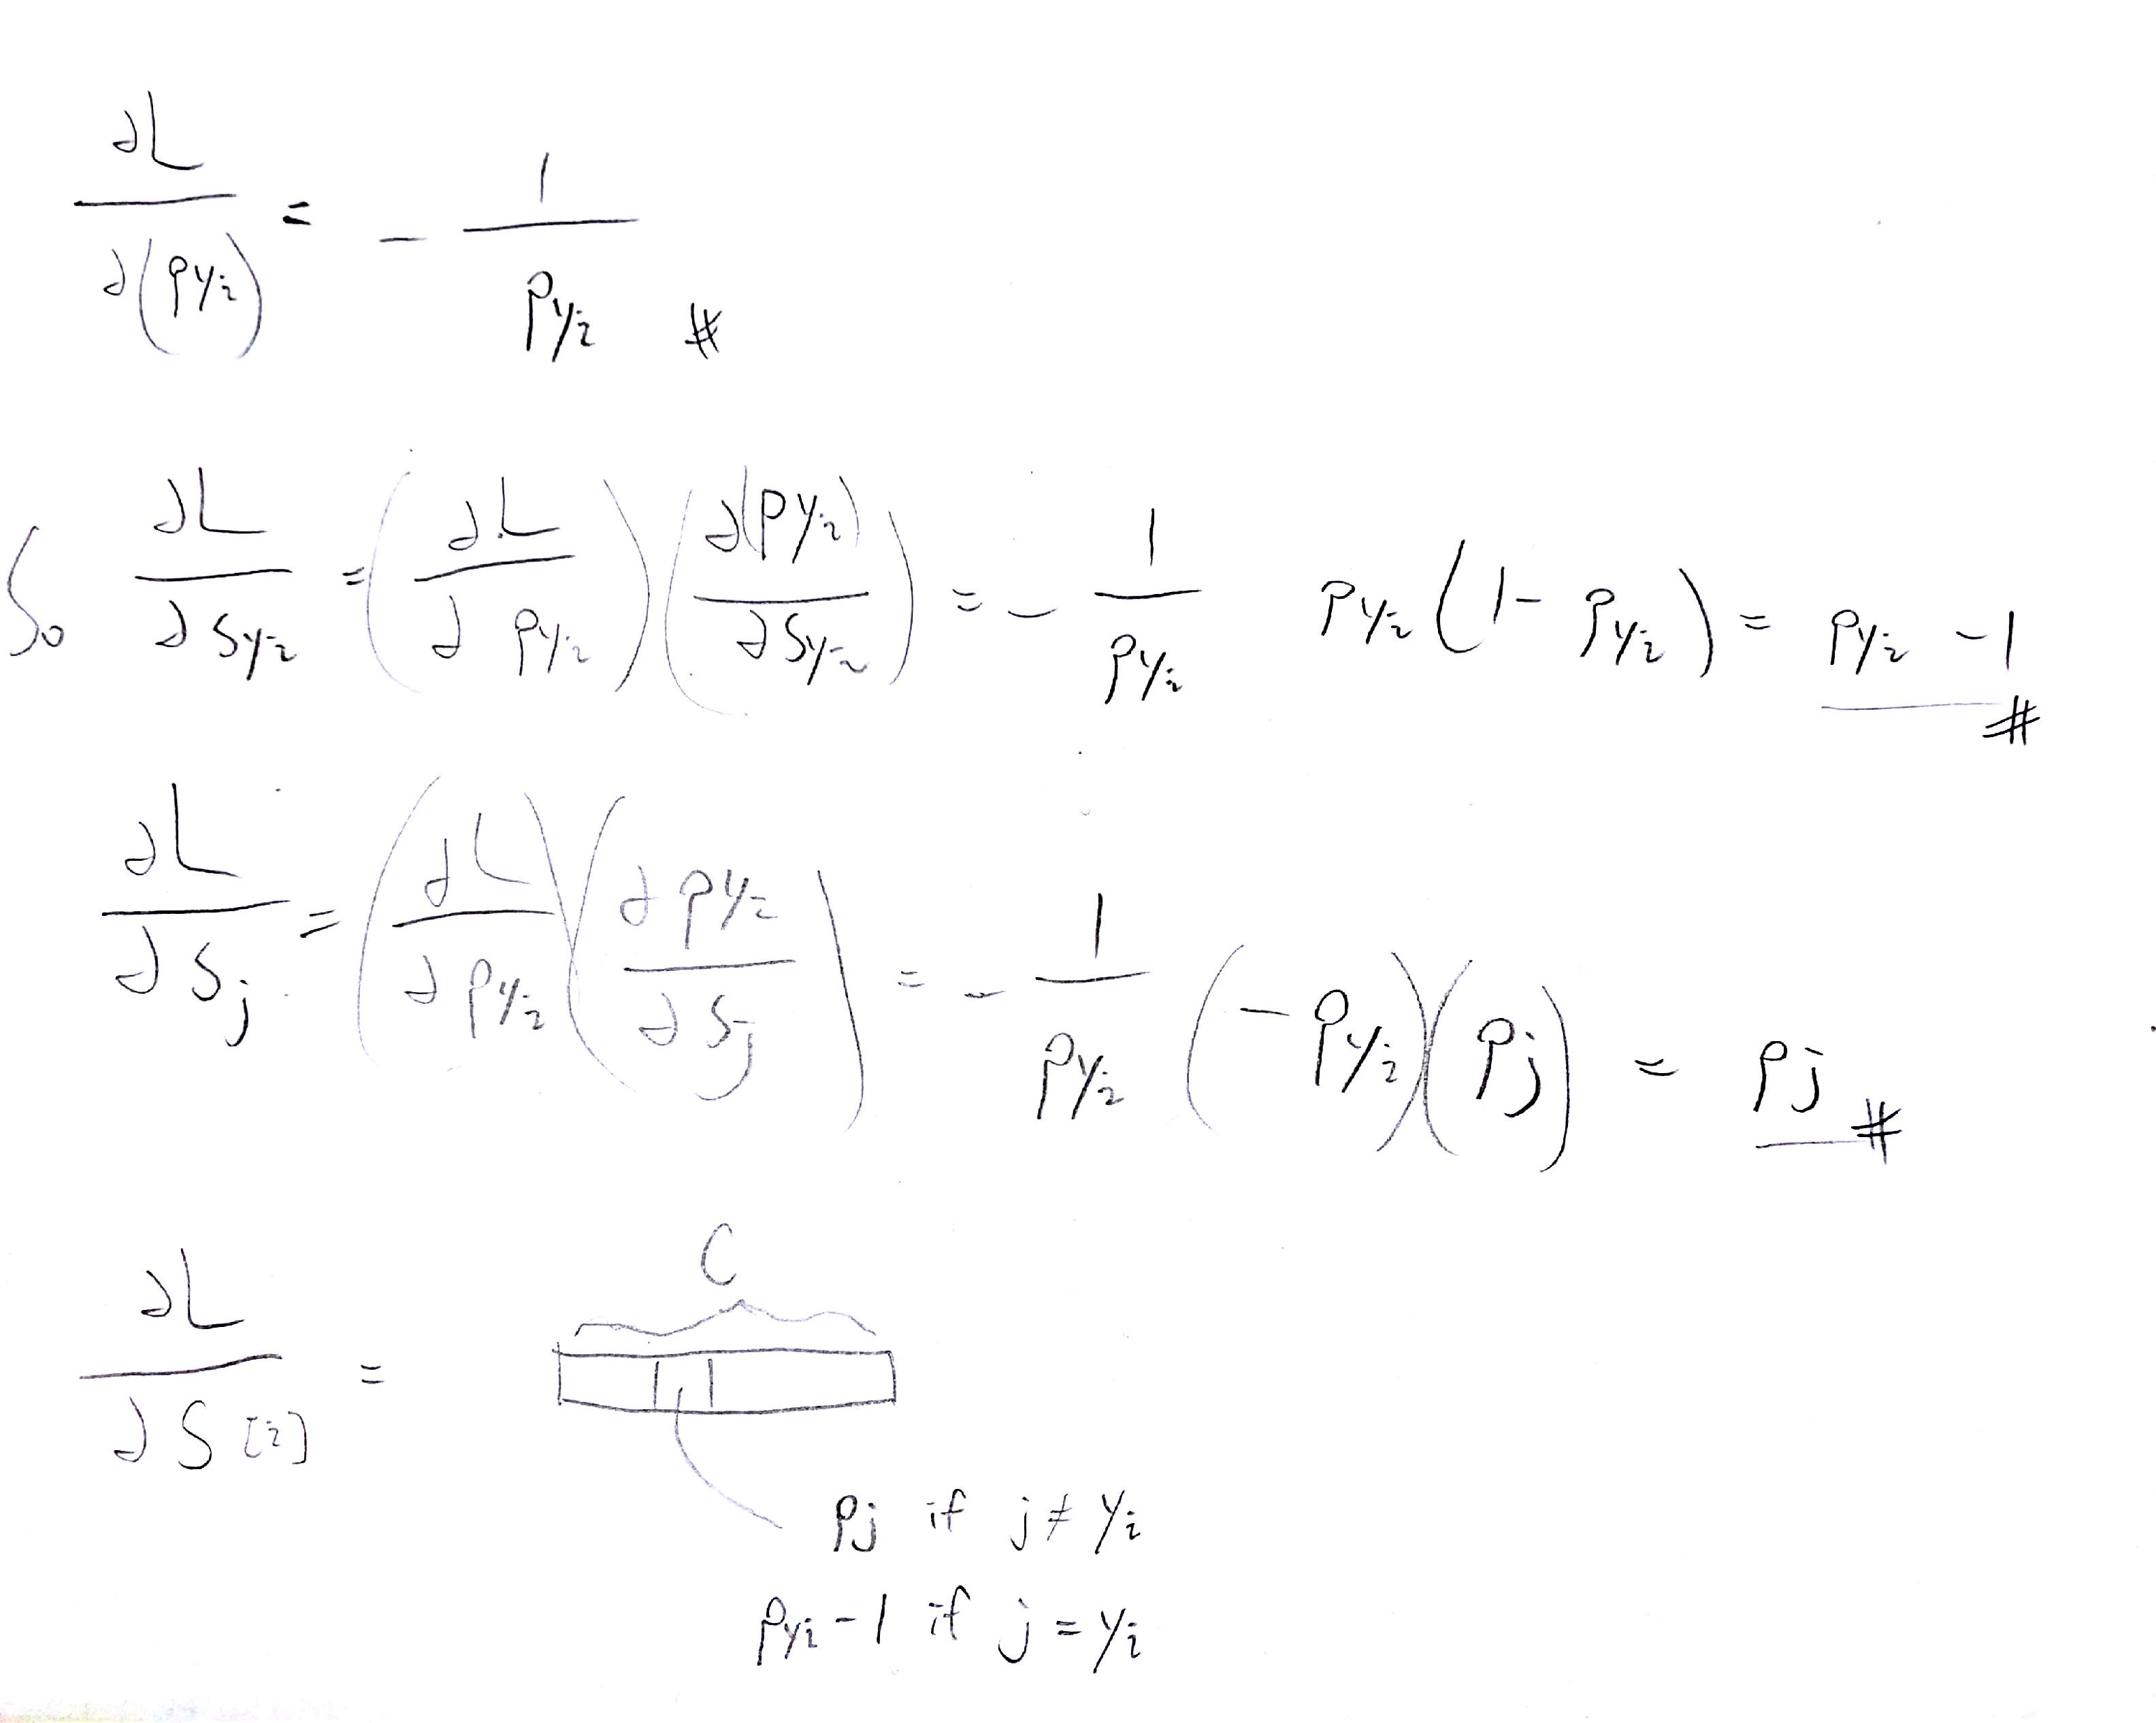 ∂L/∂(Pyi) = - 1/Pyi #
So ∂L/∂Syi = (∂L/∂Pyi)(∂(Pyi)/∂Syi) = - 1/Pyi Pyi(1 - Pyi) = Pyi - 1 #
∂L/∂Sj = (∂L/∂Pyi)(∂Pyi/∂Sj) = - 1/Pyi (-Pyi)(Pj) = Pj #
C
∂L/∂S[i] =
Pj if j ≠ yi
Pyi - 1 if j = yi